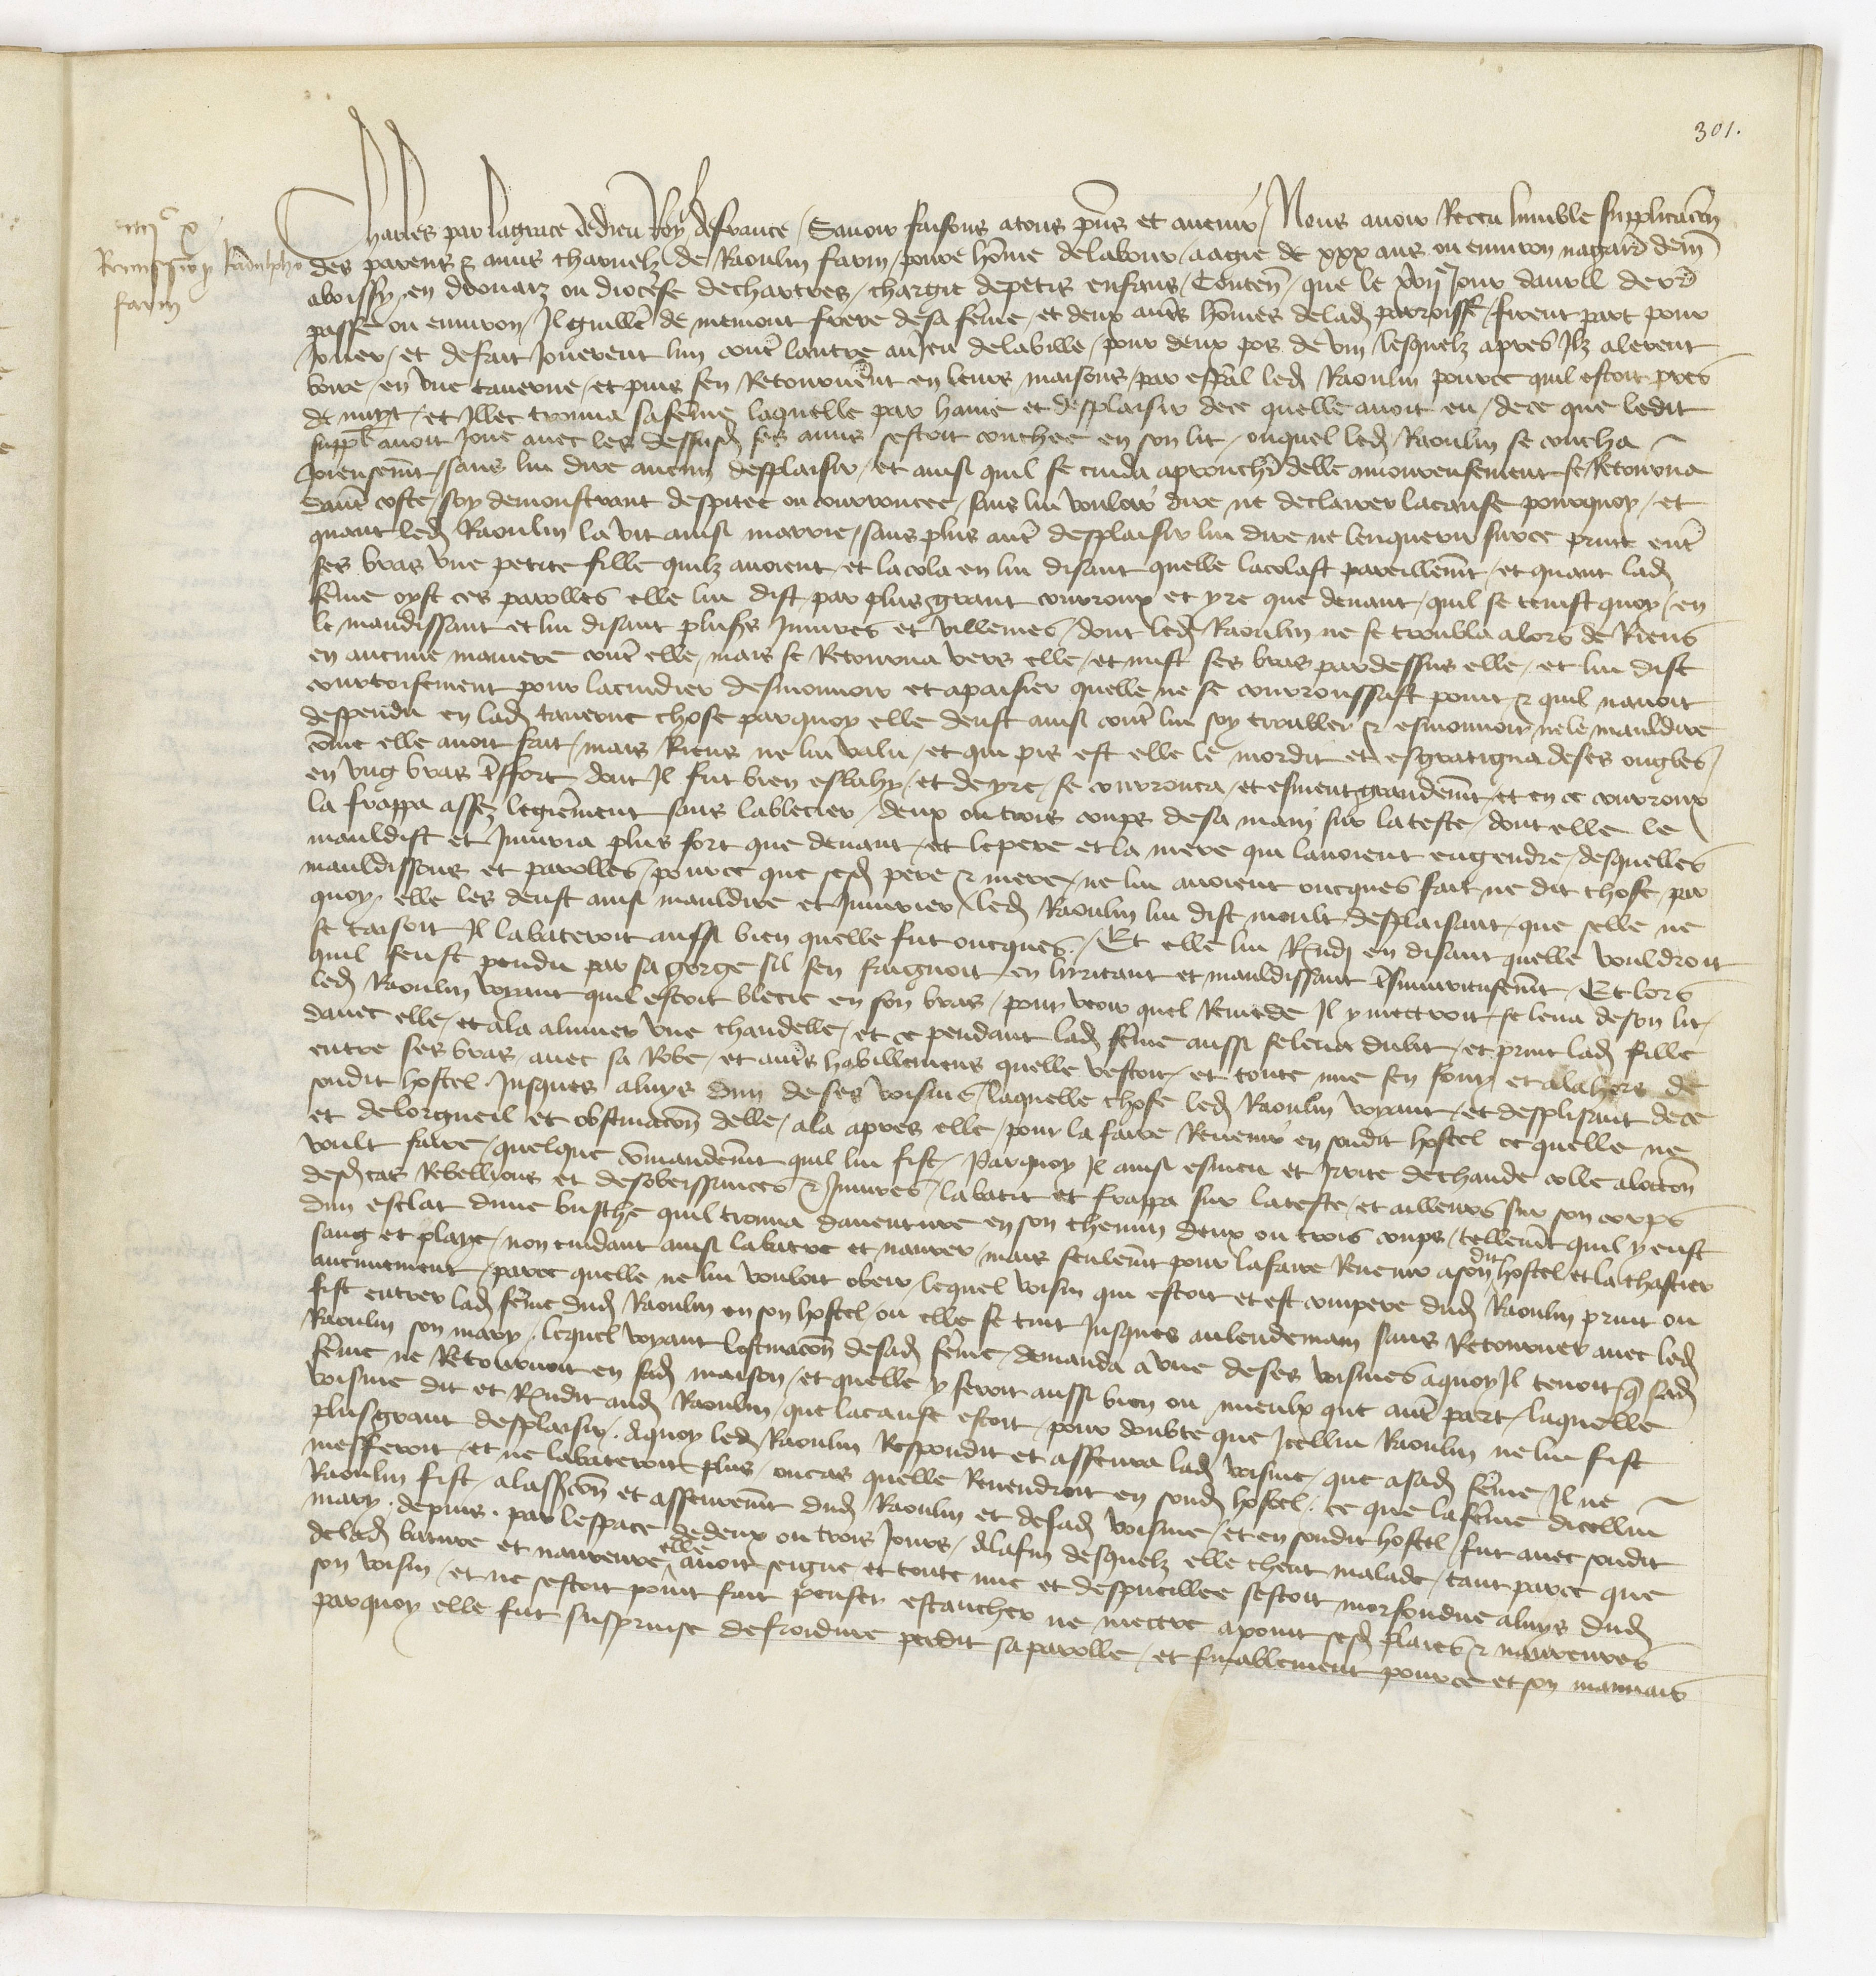 301.
iiiᶜ x
Remissio Radulpho
farin
Charles par la grace de dieu Roy de france / Savoir faisons a tous p̄ns et avenir / Nous avoir Receu lumble supplicac̄on
des parens ⁊ amis charnelz de Raoulin farin / povre hōme de labour / aagie de xxx ans ou environ nagair̄ dem̄
a boissy en drouaiz ou diocese de chartres / chargie de petis enfans / Conten̄ / que le jour davril derr̄
passe ou environ / Il guill̄e de memont frere de sa fēme / et deux aut̄s hōmes de lad parroisse / firent part pour
Jouer / et de fait Jouerent lun cont̄ lautre au Jeu de la bille / pour deux pos de vin / lesquelz apres Ilz alerent
boire / en une taverne / et puis sen Retournèrent en leurs maisons / par esp̄al led Raoulin pource quil estoit pres
de nuyt / et Illec trouva sa fēme laquelle par haine et desplaisir de ce quelle avoit eu / de ce que ledit
suppl̄ avoit Joue avec les dessusd ses amis sestoit couchee en son lit / ouquel led Raoulin se coucha
Joieusem̄t / sans lui dire aucun desplaisir / et ainsi quil se cuida aprouchr̄ delle amoureusement se Retourna
dautre coste / soy demonstrant despitee ou courroucee / sans lui vouloir dire ne declairer la cause pourquoy / et
quant led Raoulin la vit ainsi marrie / sans plus aut̄ desplaisir lui dire ne lenquerir sur ce print ent̄
ses bras une petite fille quilz avoient / et lacola en lui disant quelle lacolast pareillem̄t / et quant lad
fēme oyst ces parolles elle lui dist / par plus grant courroux et yre que devant / quil se tenist quoy / en
le maudissant et lui disant plus̄rs Injures et villenies / dont led Raoulin ne se troubla alors de Riens
en aucune maniere cont̄ elle / mais se Retourna vers elle / et mist ses bras par dessus elle / et lui dist
courtoisement pour la cuidier desmouvoir et apaisier quelle ne se courroussast point ⁊ quil navoit
despendu en lad taverne chose par quoy elle deust ainsi cont̄ lui soy troubler ⁊ esmouvoir ne le mauldire
cōme elle avoit fait / mais Riens ne lui valu / et qui pis est elle le mordit et esgratigna de ses ongles
en ung bras t̄sfort dont Il fut bien esbahy / et de yre / se courrouca / et esmeut grandem̄t / et en ce courroux
la frappa assez legierement sans la blecier / deux ou trois coups de sa main sur la teste / dont elle le
mauldist et Injuria plus fort que devant / et le pere et la mere qui lavoient engendre / desquelles
mauldissons et parolles / pource que sesd pere ⁊ mere / ne lui avoient oncques fait ne dit chose / par
quoy / elle les deust ainsi mauldire et Injurier / led Raoulin lui dist moult desplaisant / que selle ne
se taisoit Il la bateroit aussi bien quelle fut oncques / Et elle lui R̄ndi en disant quelle vouldroit
quil feust pendu par sa gorge sil sen faignoit en lirritant et mauldissant t̄sinjurieusem̄t / Et lors
led Raoulin voyant quil estoit blecie en son bras / pour veoir quel Remede Il y mectroit / se leva de son lit /
davec elle / et ala alumer une chandelle / et ce pendant lad fēme aussi se leva dud lit / et print lad fille
entre ses bras / avec sa Robe / et aut̄s habillemens quelle vestoit / et toute nue sen fouy et ala hors de
sondit hostel / Jusques a luys dun de ses voisins / laquelle chose led Raoulin voyant / et desplisant de ce
et de lorgueil et obstinac̄on delle / ala apres elle / pour la faire Revenir en sondit hostel ce quelle ne
voult faire / quelque c̄omandem̄t quil lui fist / Par quoy Il ainsi esmeu et Irrite de chaude colle a loccōn
desd cas Rebellions et desobeissances ⁊ Injures / la batit et frappa sur la teste / et ailleurs sur son corps
dun esclat dune busche quil trouva daventure en son chemin deux ou trois coups / tellem̄t quil y eust
sang et playe / non cuidant ainsi la batre et navrer / mais seulem̄t pour la faire Revenir a son dit hostel et la chastier
aucunement / parce quelle ne lui vouloit obeir / lequel voisin qui estoit et est compere dud Raoulin print ou
fist entrer lad fēme dud Raoulin en son hostel / ou elle se tint Jusques au lendemain sans Retourner avec led
Raoulin son mary / lequel voyant lostinac̄on de sad fēme / demanda a une de ses voisines a quoy Il tenoit / q̄ sad
fēme ne Retournoit en sad maison / et quelle y seroit aussi bien ou mieulx que aut̄ part / laquelle
voisine dit et R̄ndit aud Raoulin / que la cause estoit / pour doubte que Icellui Raoulin ne lui fist
plus grant desplaisir . A quoy led Raoulin Respondit et asseura lad voisine / que a sad fēme Il ne
mesferoit / et ne la bateroit plus / ou cas quelle Revendroit en sond hostel / ce que la fēme dicellui
Raoulin fist / a la ss̄cōn et asseurem̄t dud Raoulin et de sad voisine / et en sondit hostel / fut avec sondit
mary . depuis . par lespace de deux ou trois Jours / A la fin desquelz elle cheut malade / tant parce que
de lad bature et navreure elle avoit seigne / et toute nue et despueillee sestoit morfondue a luys dud
son voisin / et ne sestoit point fait penser estancher ne mectre a point sesd plaies ⁊ navreures
par quoy elle fut susprinse de froidure perdit sa parolle / et finablement pour ce et son mauvais